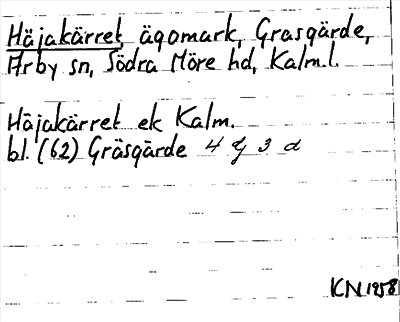 Häjakärret, ägomark, Grasgärde,
Arby sn, Södra Möre hd, Kalm.l.
Häjakärret ek Kalm.
bl. (62) Gräsgärde 4 G 3 d
KN 1958